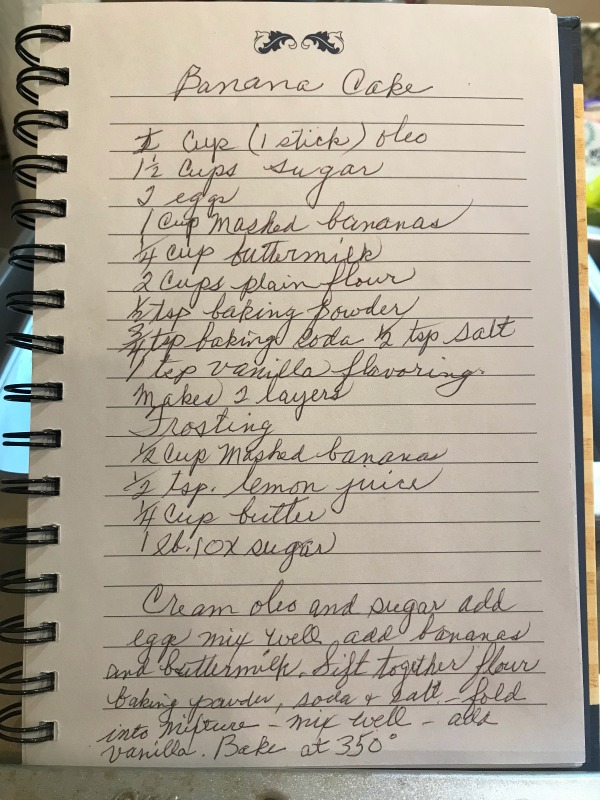 Banana Cake
½ Cup (1 stick) oleo
1½ Cups sugar
2 eggs
1 Cup Mashed bananas
¼ cup buttermilk
2 Cups plain flour
½ tsp baking powder
¾ tsp baking soda ½ tsp salt
1 tsp vanilla flavoring.
Makes 2 layers
Frosting
½ Cup Mashed bananas
½ tsp. lemon juice
¼ Cup butter
1 lb. 10X sugar
Cream oleo and sugar add
eggs mix well, add bananas
and buttermilk. Sift together flour
baking powder, soda & salt – fold
into mixture – mix well – add
vanilla. Bake at 350°